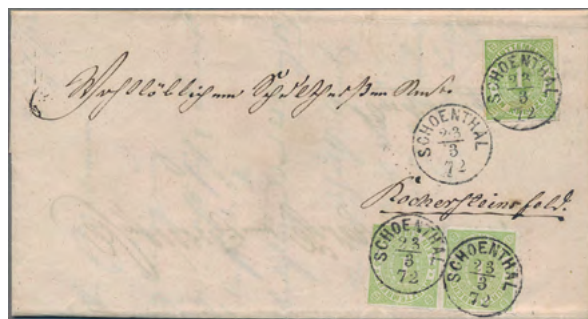 SCHOENTHAL
23
3
72
Wohllöblichem Schultheißen Amte
SCHOENTHAL
23
3
72
Kochersteinsfeld.
SCHOENTHAL
23
3
72
SCHOENTHAL
23
3
72